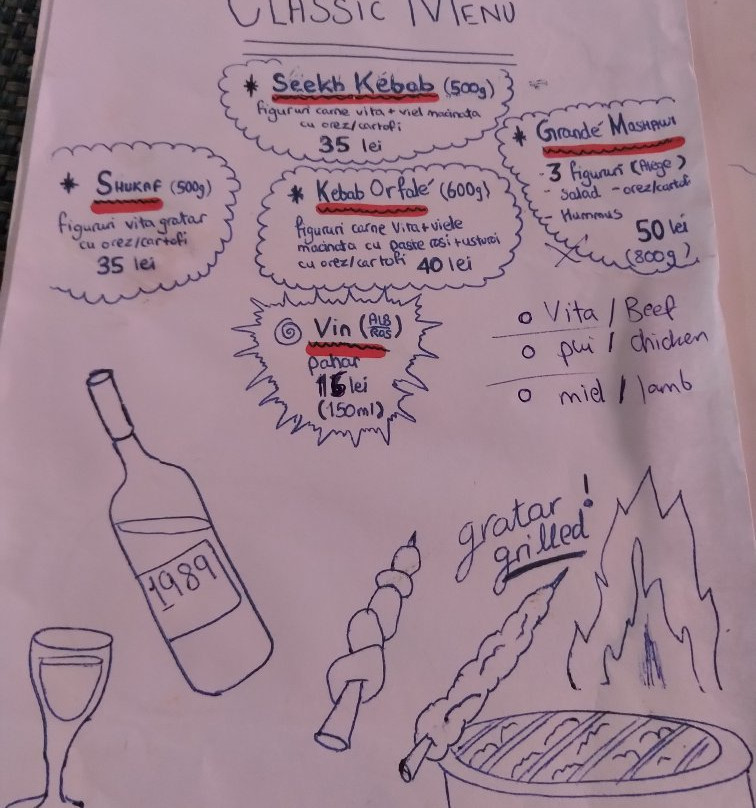 CLASSIC MENU
* Seekh Kébab (500g)
figururi carne vita + viel macinata
cu orez/cartofi
35 lei
* SHUKAF (500g)
figururi vita gratar
cu orez/cartofi
35 lei
* Kebab Orfalé (600g)
figururi carne vita + viele
macinata cu paste rosi + usturoi
cu orez/cartofi 40 lei
* Grandé MASHAWI
- 3 figururi (Alege)
- Salad - orez/cartofi
- Hummus
50 lei
(800g)
Vin (ALB/ROS)
pahar
15 lei
(150ml)
o Vita / Beef
o pui / chicken
o miel / lamb
1989
gratar!
grilled